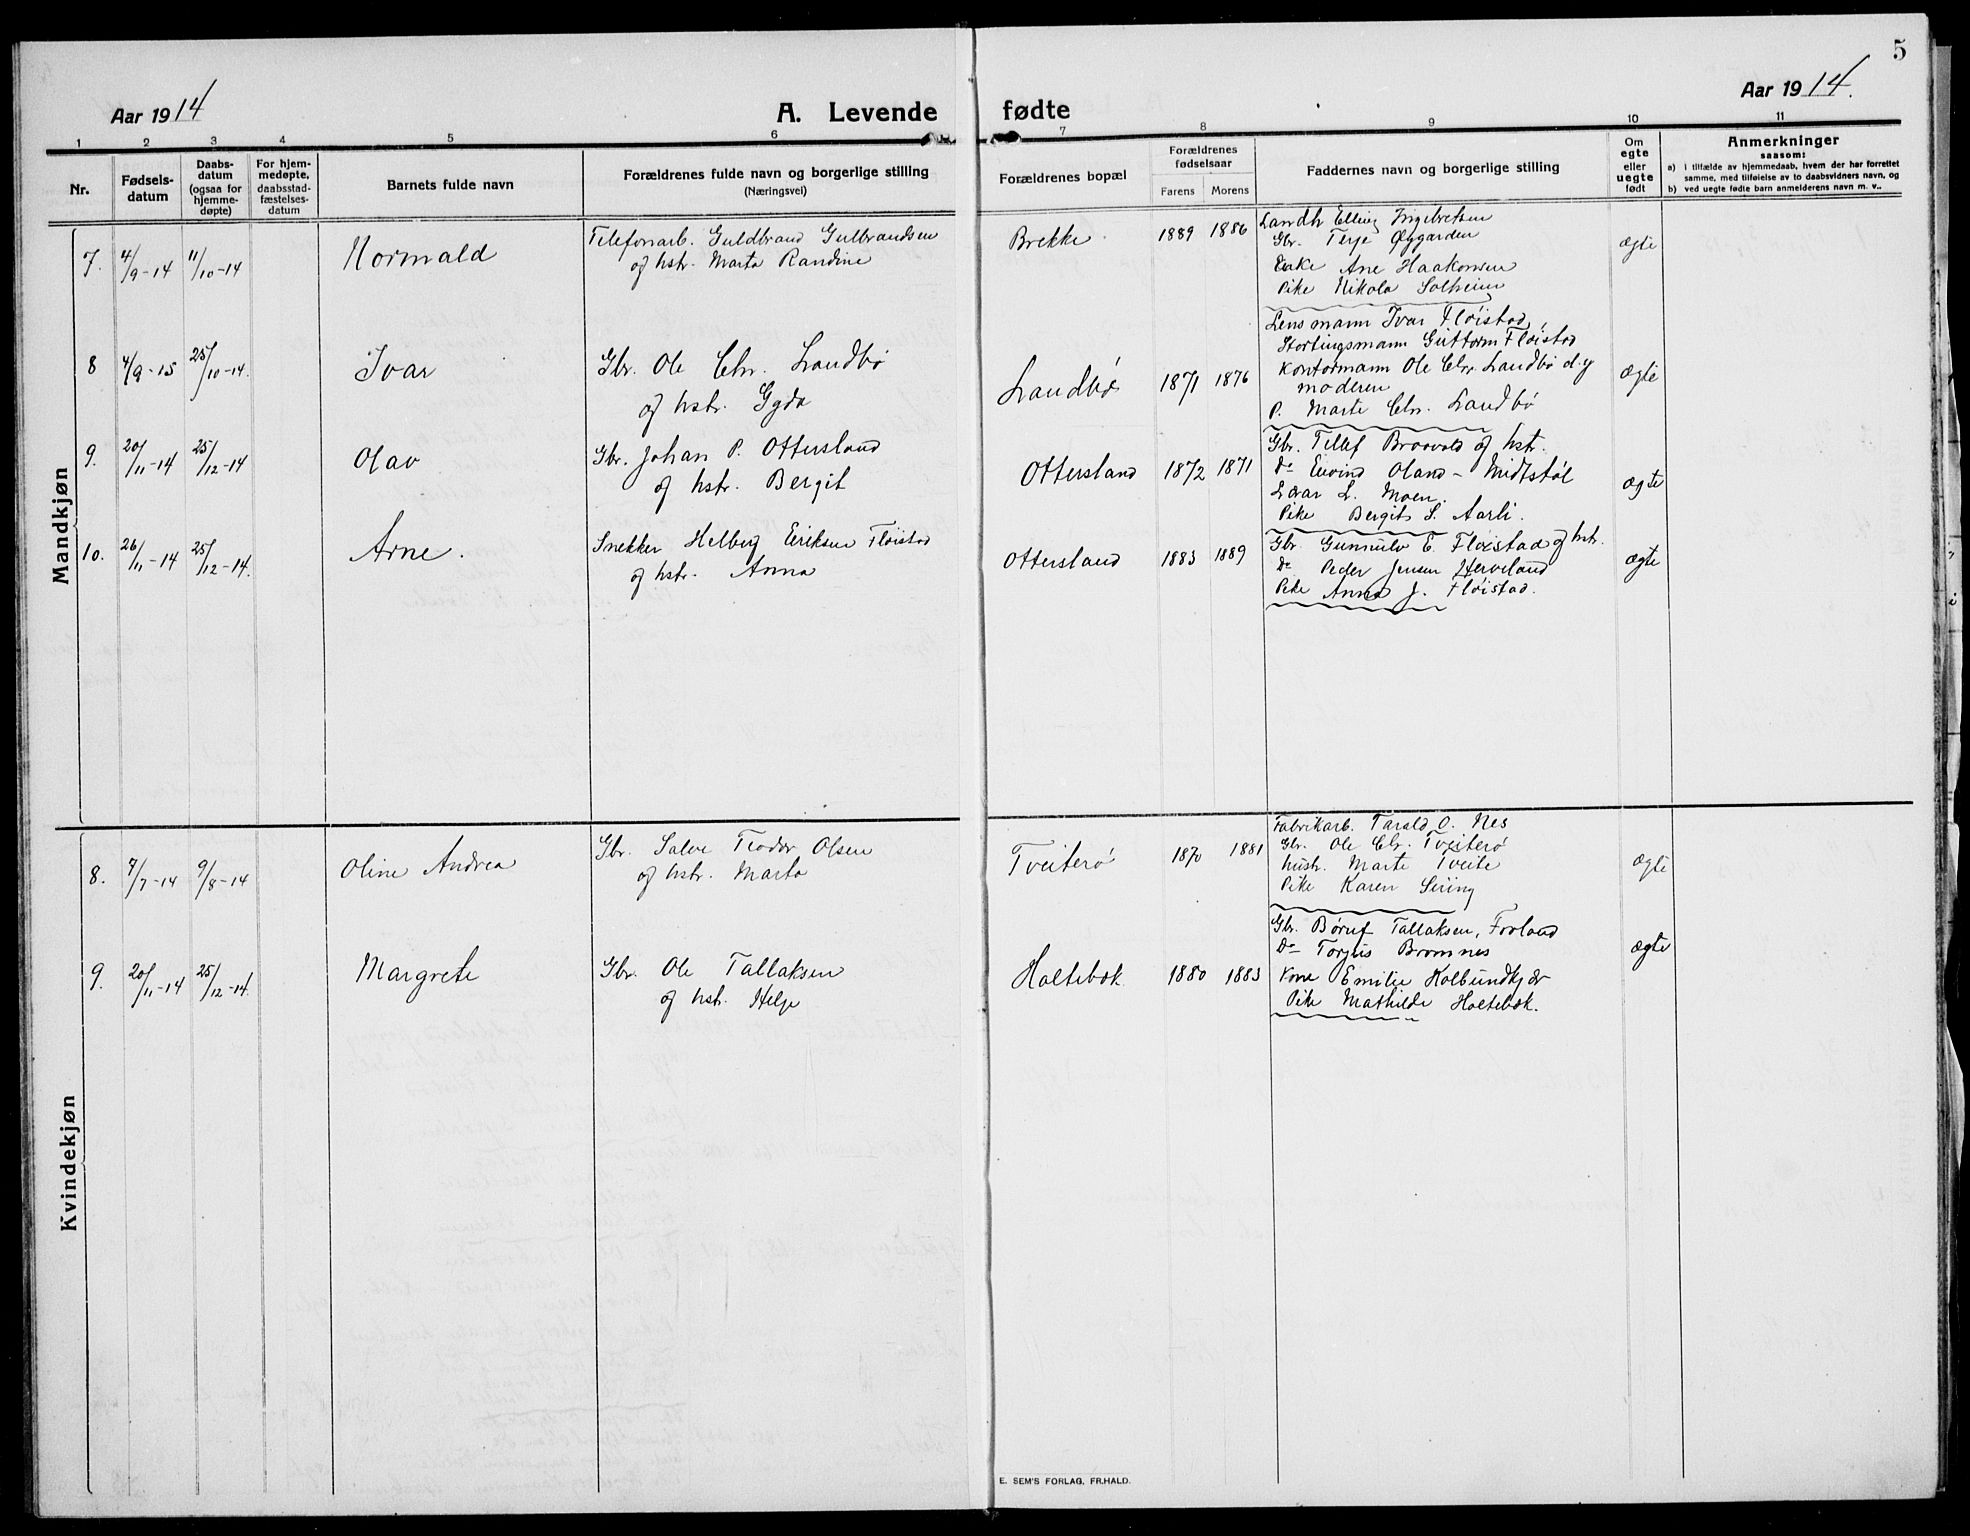 5
Aar 1914
A. Levende fødte
Aar 1914.
1 2 3 4 5 6 7 8 9 10 11
Nr.
Fødsels-
datum
Daabs-
datum
(ogsaa for
hjemme-
døpte)
For hjem-
medøpte,
daabsstad-
fæstelses-
datum
Barnets fulde navn
Forældrenes fulde navn og borgerlige stilling
(Næringsvei)
Forældrenes bopæl
Forældrenes
fødselsaar
Farens Morens
Faddernes navn og borgerlige stilling
Om
egte
eller
uegte
født
Anmerkninger
saasom:
a) i tilfælde av hjemmedaab, hvem der har forrettet
samme, med tilføielse av to daabsvidners navn, og
b) ved uegte fødte barn anmelderens navn m. v..
Mandkjøn
7. 4/9-14 11/10-14 Normald
Telefonarb. Guldbrand Gulbrandsen
og hstr. Marta Randine
Brekke 1889 1886
Landh Elling Ingebretsen
Gbr. Terje Øygarden
Enke Ane Haakonsen
Pike Nikola Solheim
ægte
8 4/9-15 25/10-14. Ivar
Gbr. Ole Chr. Landbø
og hstr. Gyda
Landbø 1871 1876
Lensmann Ivar Fløistad,
Stortingsmann Guttorm Fløistad
Kontormann Ole Chr. Landbø d.y
moderen
P. Marte Chr. Landbø
ægte
9. 20/11-14 25/12-14 Olav
Gbr. Johan P. Ottersland
og hstr. Bergit
Ottersland 1872 1871
Gbr. Tellef Braavold og hstr.
Do Eivind Oland - Midtstøl
Lærar L. Moen.
Pike Bergit S. Aarli.
ægte
10. 26/11-14 25/12-14. Arne.
Snekker Helberg Eriksen Fløistad
og hstr. Anna
Ottersland 1883 1889
Gbr. Gunnulv E. Fløistad og hstr.
Do Peder Jensen Herveland
Pike Anna J. Fløistad.
ægte
Kvindekjøn
8. 7/7-14 9/8-14 Oline Andrea
Gbr. Salve Teodor Olsen
og hstr. Marta
Tveiterø 1870 1881
Fabrikarb. Tarald O. Nes
Gbr. Ole Chr. Tveiterø
hustr. Marte Tveite
Pike Karen Sering
ægte
9. 20/11-14 25/12-14. Margrete
Gbr. Ole Tallaksen
og hstr. Helje
Holtebæk 1880 1883
Gbr. Børuf Tallaksen, Froland
Do Torjus Bromnes
Kone Emilie Kolbundkjær
Pike Mathilde Holtebæk.
ægte
E. SEM'S FORLAG, FR.HALD.